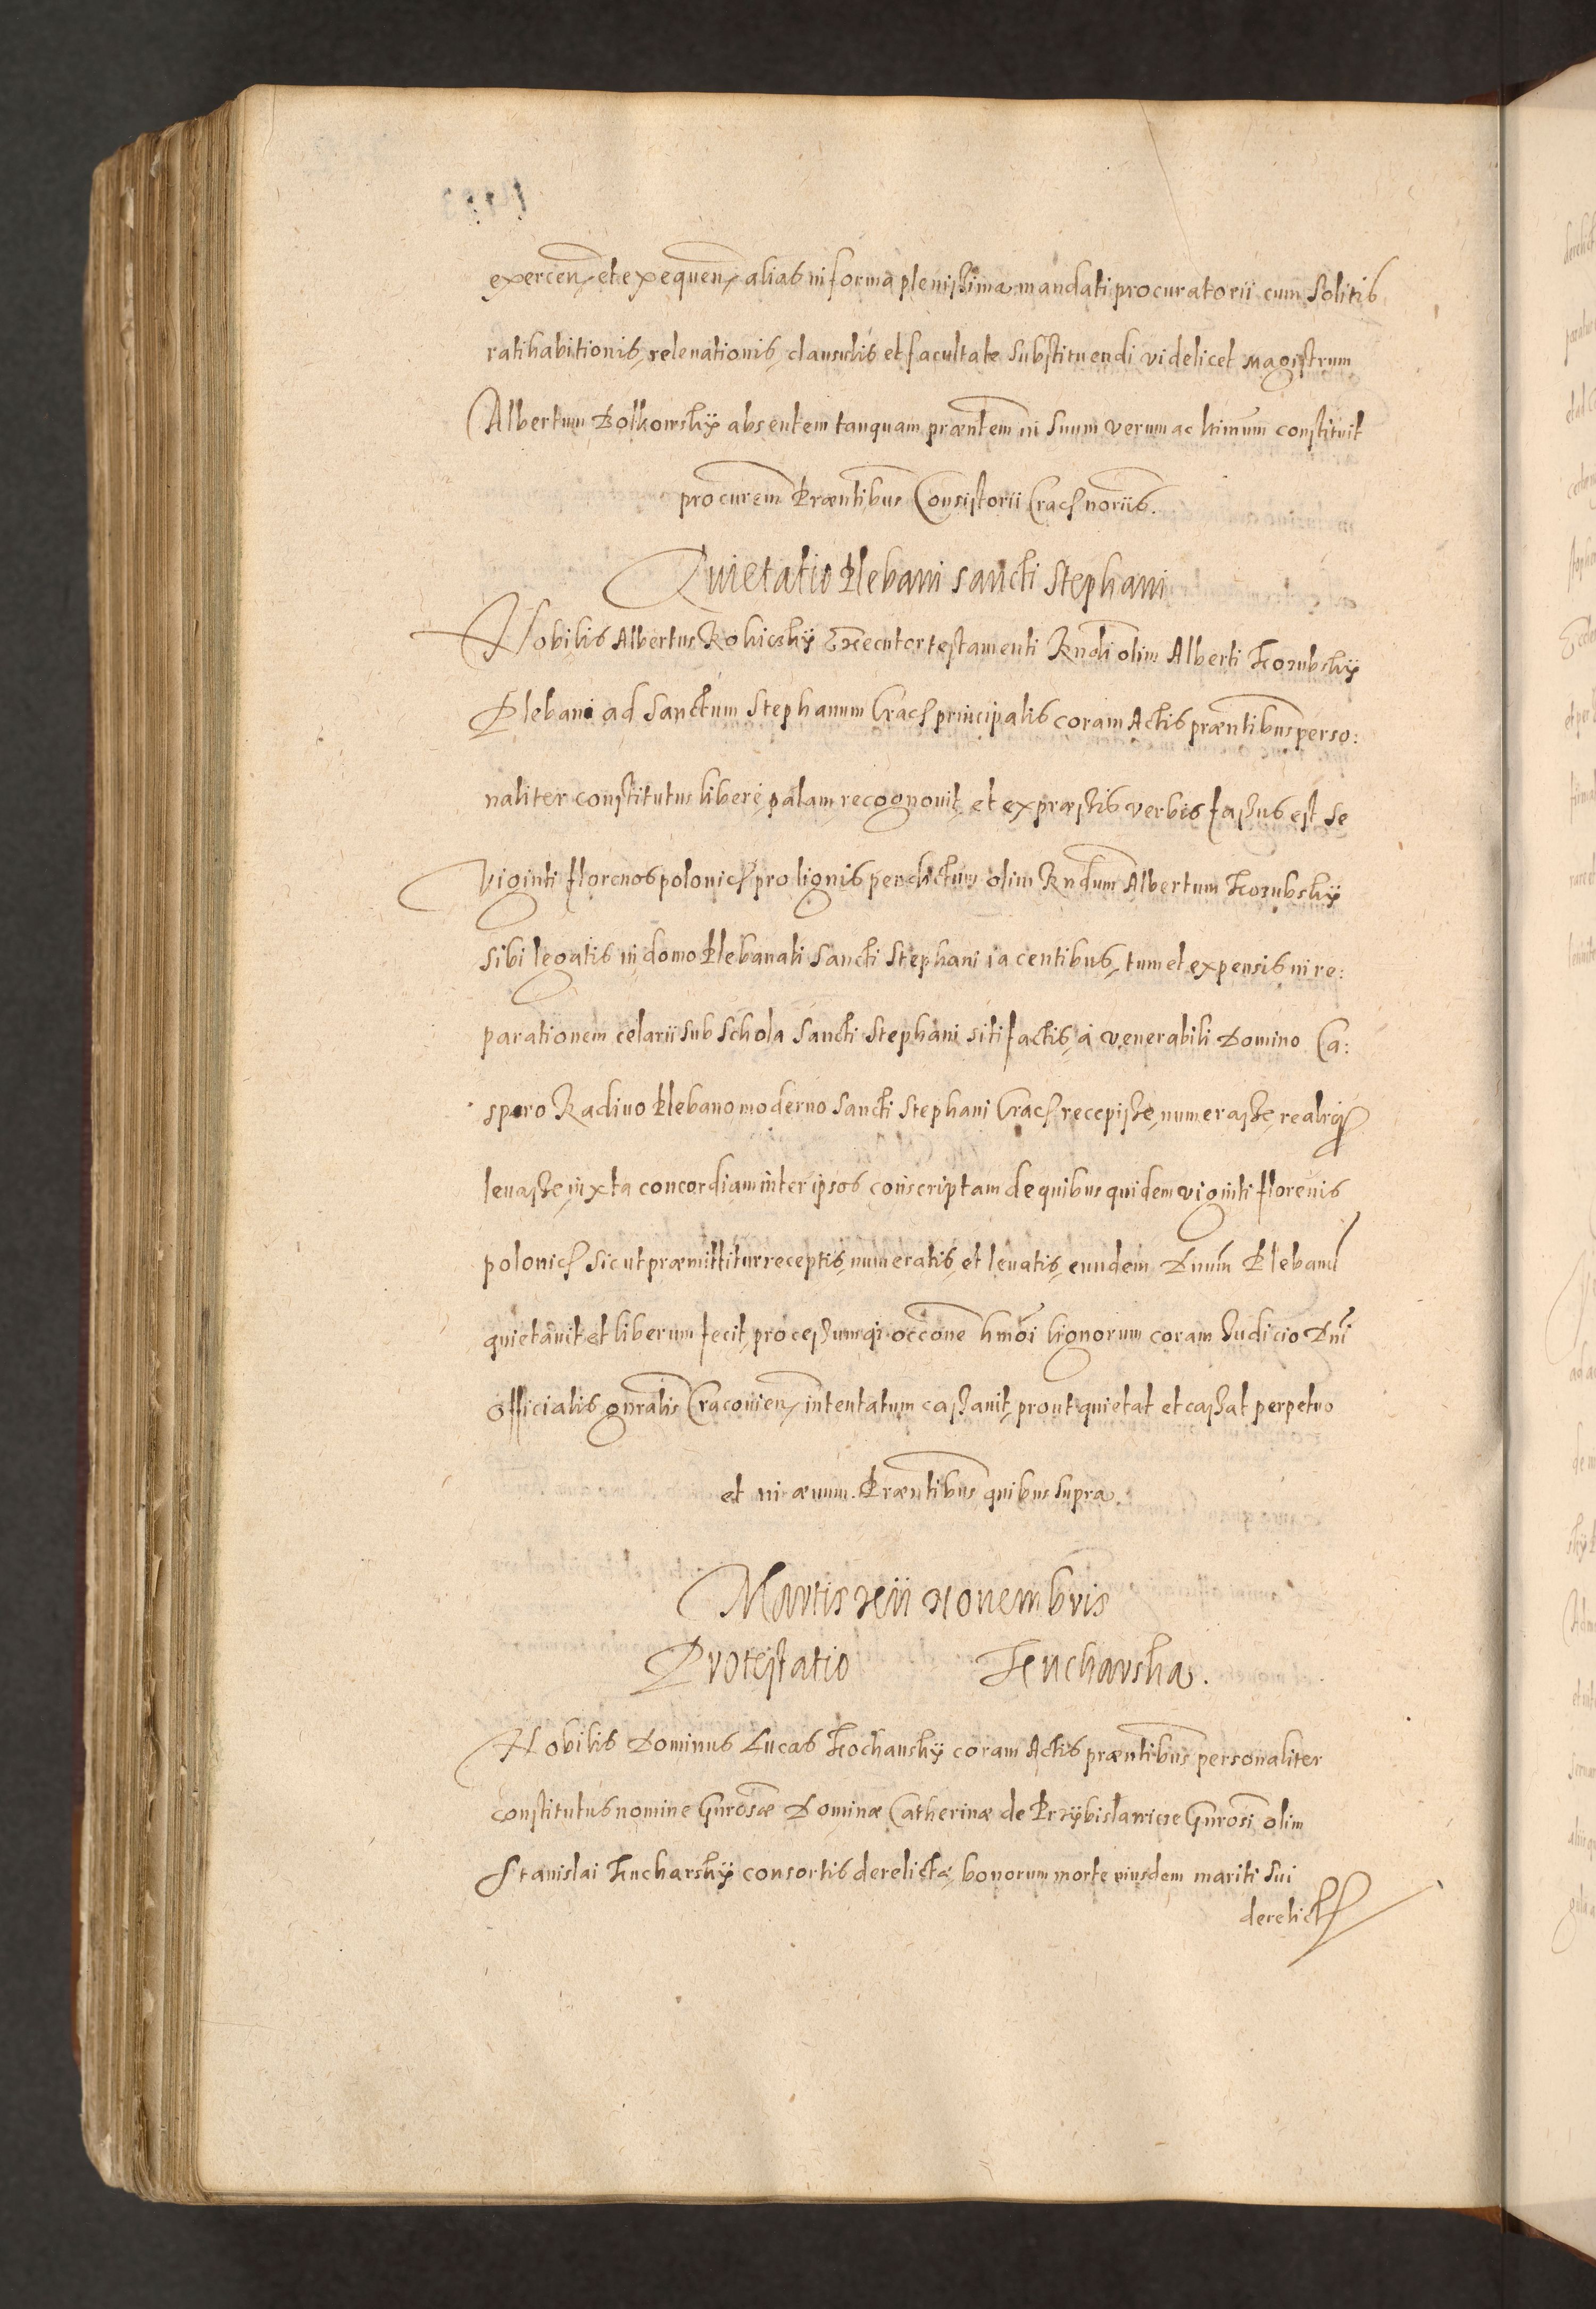 exercen. et exequen. alias in forma plenissima mandati procuratorii cum solitis
ratihabitionis, relevationis, clausulis et facultate substituendi videlicet Magistrum
Albertum Bolkowskÿ absentem tanquam præntem in suum verum ac ltimum constituit
procurem Præntibus Consistorii Crac. noriis.
Quietatio Plebani sancti Stephani
Nobilis Albertus Rokickÿ Executor testamenti Rndi olim Alberti Kozubskÿ
Plebani ad Sanctum Stephanum Crac. principalis coram Actis præntibus perso:
naliter constitutus libere, palam, recognovit, et expræssis verbis fassus est se
Viginti florenos polonic. pro lignis per dictum olim Rndum Albertum Kozubskÿ
sibi legatis in domo Plebanali Sancti Stephani iacentibus, tum et expensis in re:
parationem celarii sub schola Sancti Stephani siti factis, a venerabili Domino Ca:
sparo Radivo Plebano moderno Sancti Stephani Crac. recepisse, numerasse, realiq;
levasse, iuxta concordiam inter ipsos conscriptam de quibus quidem viginti florenis
polonic. sicut præmittitur receptis, numeratis, et levatis, eundem Dnum Plebanu
quietavit et liberum fecit, processumq; occone hmoi lignorum coram Iudicio Dni
Officialis gnralis Cracovien. intentatum cassavit, prout quietat et cassat perpetuo
et in ævum. Præntibus quibus supra.
Martis xii Novembris
Protestatio Kucharska.
Nobilis Dominus Lucas Kochanskÿ coram Actis præntibus personaliter
constitutus nomine Gnrosæ Dominæ Catherinæ de Przÿbislawicze Gnrosi olim
Stanislai Kucharskÿ consortis derelictæ, bonorum morte eiusdem mariti sui
derelict.